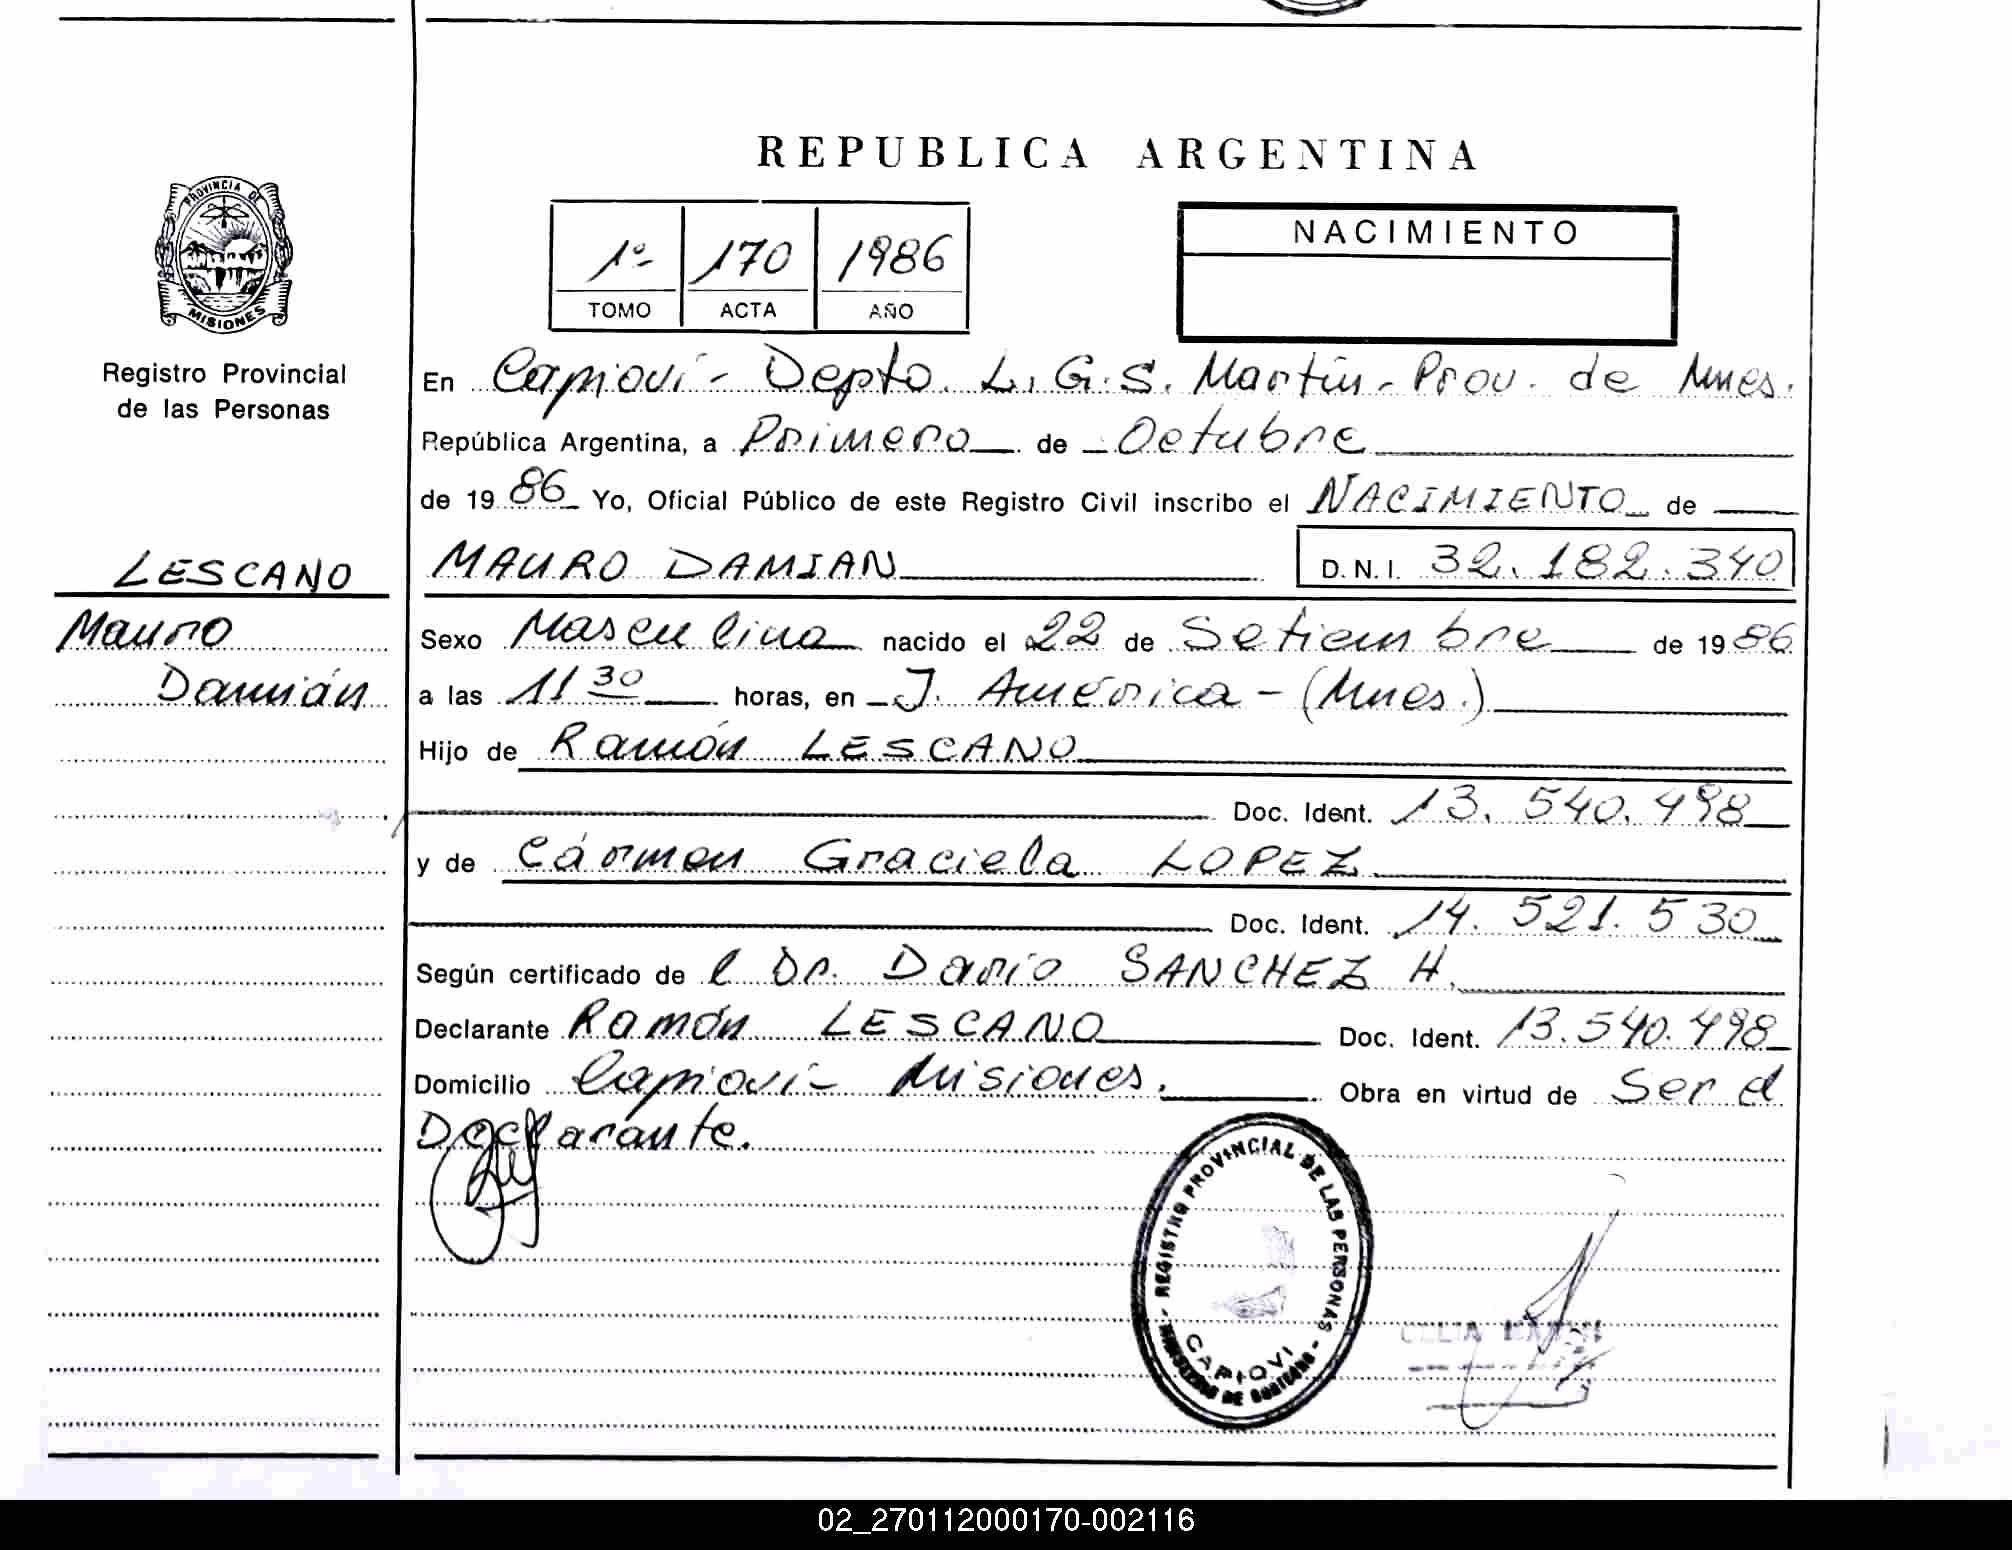 REPUBLICA ARGENTINA
PROVINCIA DE
MISIONES
Registro Provincial
de las Personas
1º 170 1986
TOMO ACTA AÑO
NACIMIENTO
En Capioví - Depto. L. G. S. Martín - Prov. de Mnes.
República Argentina, a Primero de Octubre
de 1986 Yo, Oficial Público de este Registro Civil inscribo el NACIMIENTO de
LESCANO
Mauro
Damián
MAURO DAMIAN D.N.I. 32.182.340
Sexo Masculino nacido el 22 de Setiembre de 1986
a las 11 30 horas, en J. América - (Mnes.)
Hijo de Ramón LESCANO
Doc. Ident. 13.540.498
y de Cármen Graciela LOPEZ
Doc. Ident. 14.521.530
Según certificado de l Dr. Darío SANCHEZ H.
Declarante Ramón LESCANO Doc. Ident. 13.540.498
Domicilio Capioví - Misiones. Obra en virtud de Ser el
Declarante.
- REGISTRO PROVINCIAL DE LAS PERSONAS -
CAPIOVI
MINISTERIO DE GOBIERNO
CELIA
02_270112000170-002116